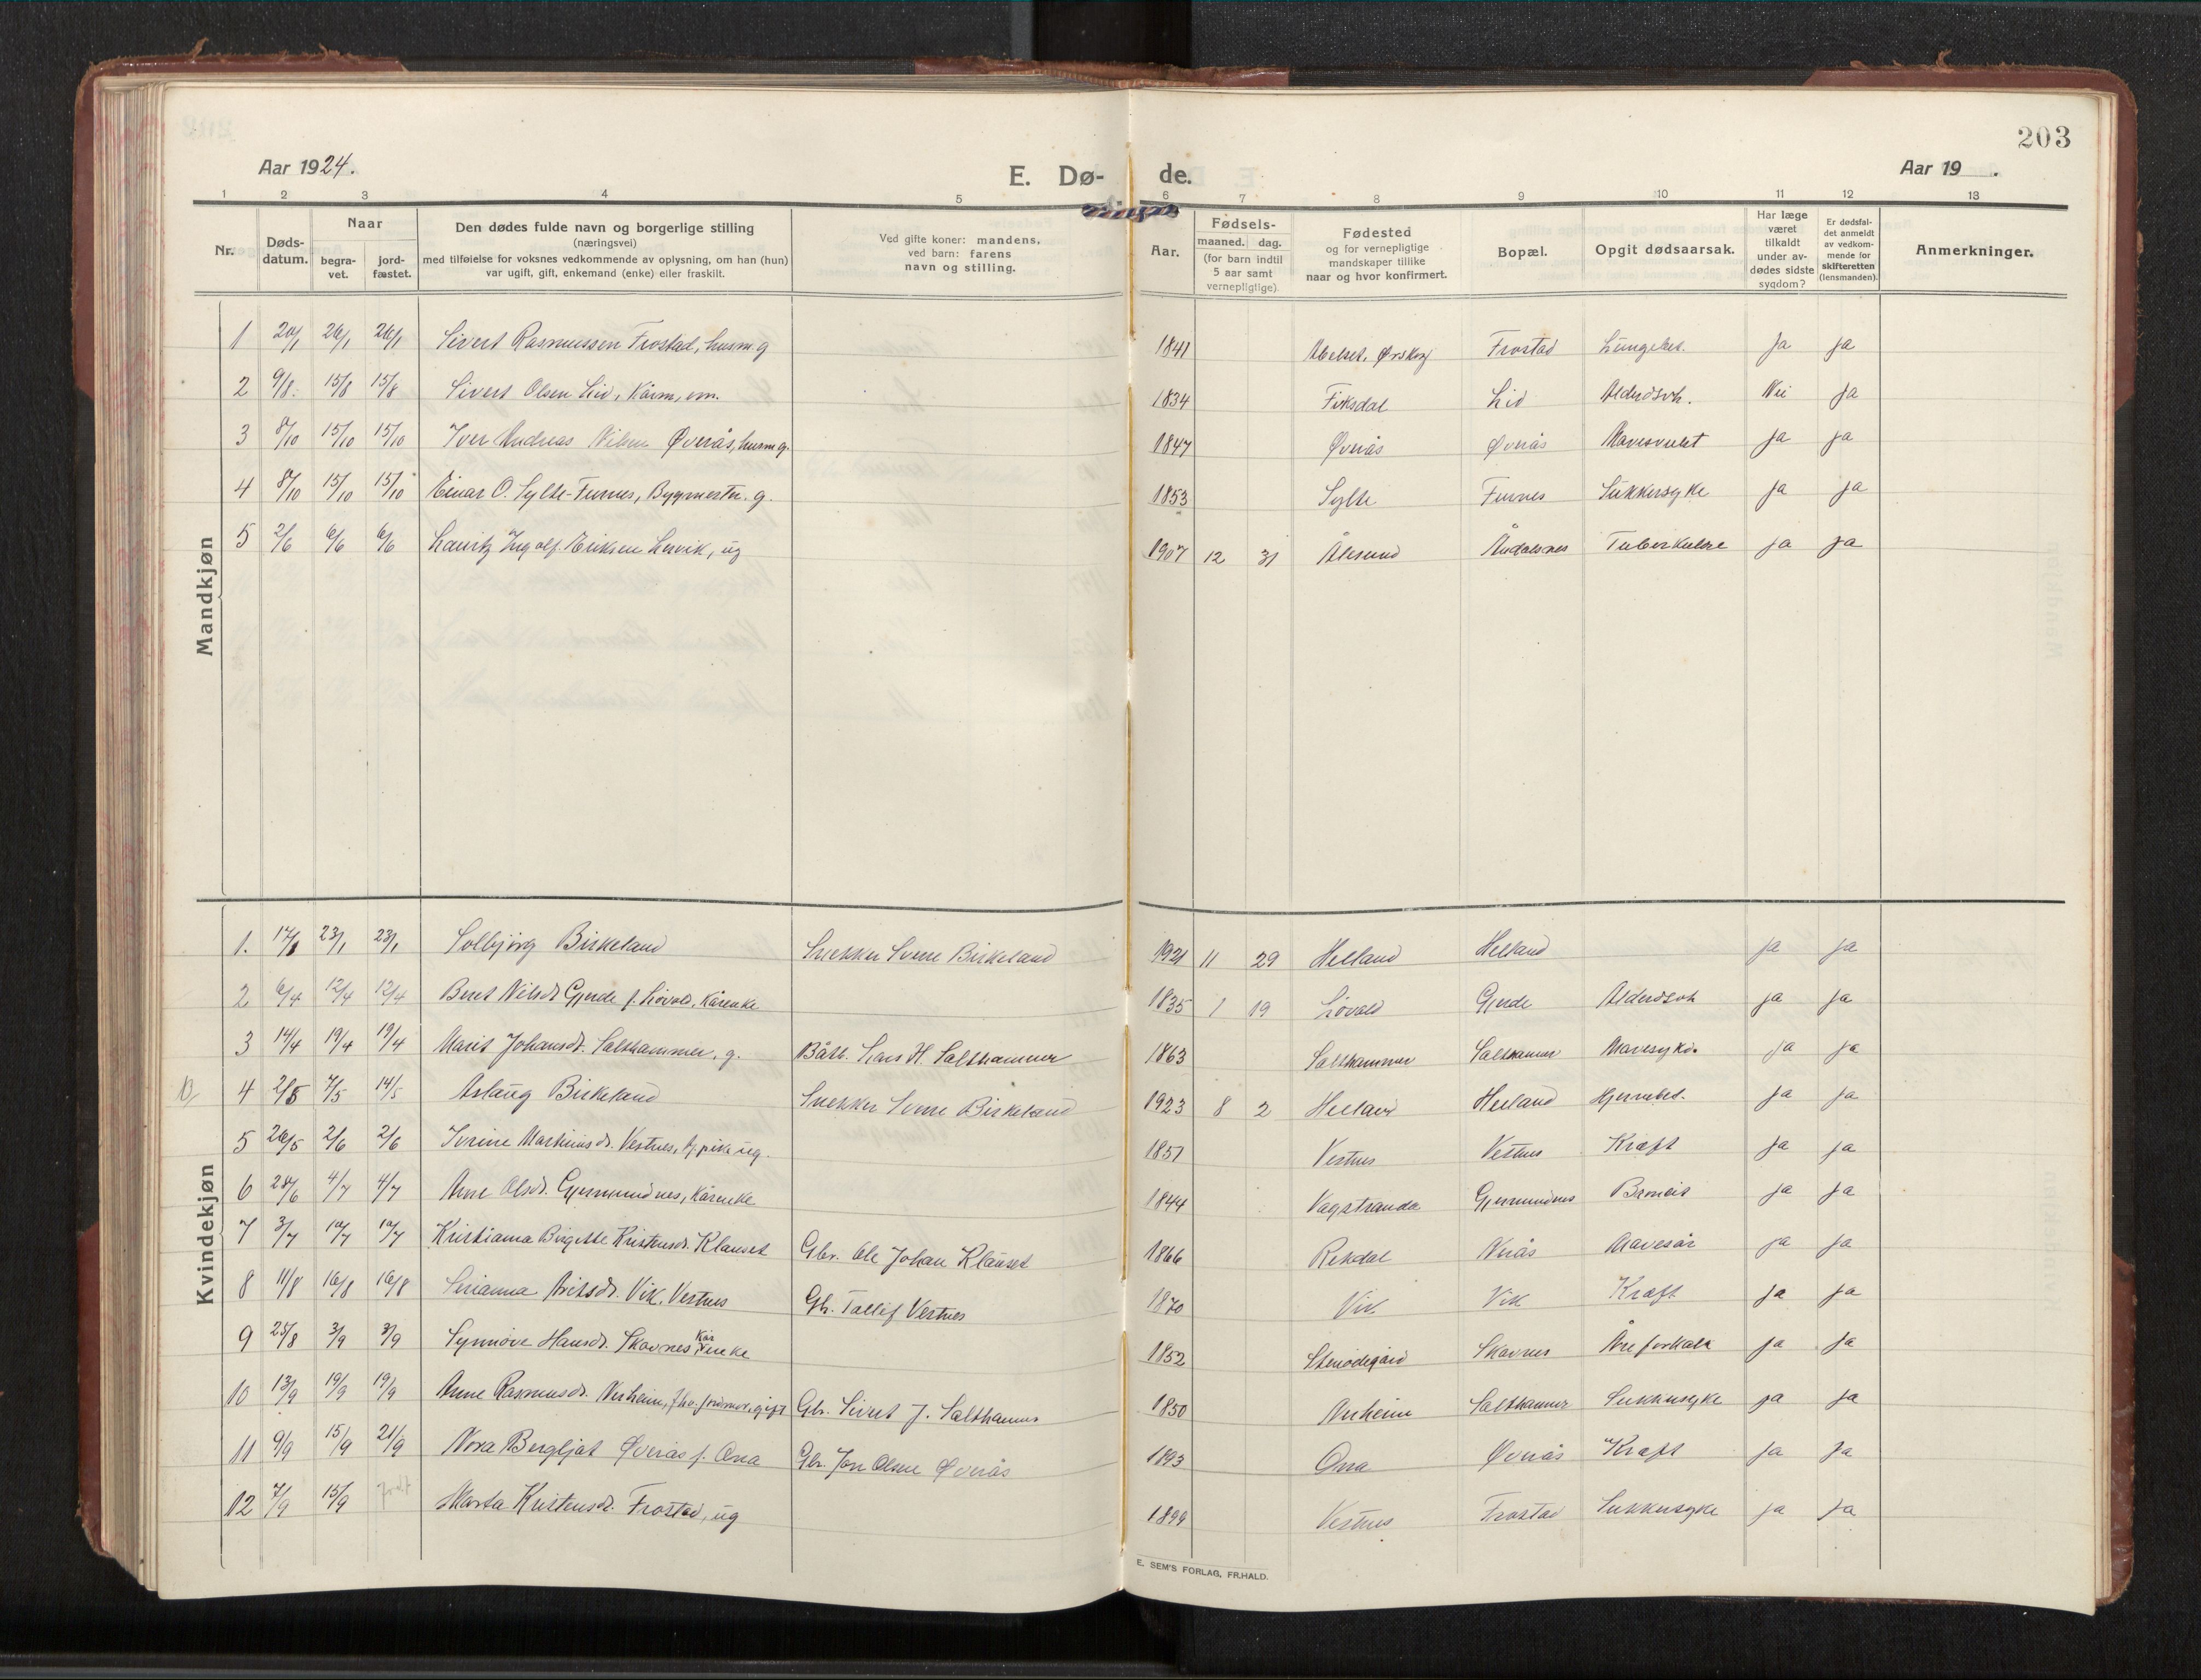 203
Aar 1924.
E. Dø- de.
Aar 19 .
1 2 3 4 5 6 7 8 9 10 11 12 13
Nr.
Døds-
datum.
Naar
begra-
vet.
jord-
fæstet.
Den dødes fulde navn og borgerlige stilling
(næringsvei)
med tilføielse for voksnes vedkommende av oplysning, om han (hun)
var ugift, gift, enkemand (enke) eller fraskilt.
Ved gifte koner: mandens,
ved barn: farens
navn og stilling.
Aar.
Fødsels-
maaned. dag.
(for barn indtil
5 aar samt
vernepligtige).
Fødested
og for vernepligtige
mandskaper tillike
naar og hvor konfirmert.
Bopæl.
Opgit dødsaarsak.
Har læge
været
tilkaldt
under av-
dødes sidste
sygdom?
Er dødsfal-
det anmeldt
av vedkom-
mende for
skifteretten
(lensmanden).
Anmerkninger.
Mandkjøn
1 20/1 26/1 26/1 Sivert Rasmussen Frostad, husm. g 1841 Abelset, Ørskog Frostad Lungebet. Ja ja
2 9/8. 15/8 15/8 Sivert Olsen Lid, Kårm, em. 1834 Fiksdal Lid Alderdsvh. Nei ja
3 8/10 15/10 15/10 Iver Andreas Nilsen Øverås, husm g. 1847 Øverås Øverås Mavesvulst ja ja
4 8/10 15/10 15/10 Einar O. Sylte-Furnes, Bygmester. g. 1853 Sylte Furnes Sukkersyke ja ja
5 2/6 6/6 6/6 Lauritz Ingolf Eriksen Lervik, ug 1907 12 31 Ålesund Åndalsnes Tuberkulose ja ja
Kvindekjøn
1. 17/1 23/1 23/1 Solbjørg Birkeland Snekker Sverre Birkeland 1921 11 29 Helland Helland ja ja
2 6/4 12/4 12/4 Beret Nilsdr Gjerde f. Løvold, Kårenke 1835 1 19 Løvold Gjerde Alderdsvh ja ja
3 14/4 19/4 19/4 Marit Johansdr. Salthammer, g. Båtb. Lars H. Salthammer 1863 Salthammer Salthamer Mavesykd. ja ja
4 2/5 7/5 14/5 Aslaug Birkeland Snekker Sverre Birkeland 1923 8 2 Helland Helland Hjernebet. ja ja
5 26/5 2/6 2/6 Iverine Martinusdr. Vestnes, tj.pike ug. 1851 Vestnes Vestnes Kræft ja ja
6 28/6 4/7 4/7 Anne Olsdr. Gjermundnes, Kårenke 1844 Vagstranda Gjermundnes Bronkit ja ja
7 3/7 10/7 10/7 Kristianna Birgitte Kristensdr. Klauset Gbr. Ole Johan Klauset 1866 Rekdal Nerås Mavesår ja ja
8 11/8 16/8 16/8 Serianna Arilsdr. Vik, Vestnes Gb. Tollef Vestnes 1870 Vik Vik Kræft ja ja
9 25/8 3/9 3/9 Synnøve Hansdr. Skavnes Kårenke 1852 Stenødegård Skavnes Åreforkalk ja ja
10 13/9 19/9 19/9 Anne Rasmusdr. gift Gbr. Sivert J. Salthammer 1850 Salthammer Sukkersyke ja ja
11 9/9 15/9 21/9 Nora Bergljot Øverås f. Ona Gbr. Jon Olsen Øverås 1893 Ona Øverås Kræft ja ja
12 7/9 15/9 Marta Kristensdr. Frostad, ug 1899 Vestnes Frostad Sukkersyke ja ja
E. SEM'S FORLAG, FR.HALD.